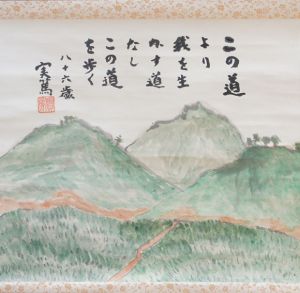 この道
より
我を生
かす道
なし
この道
を歩く
八十六歳
実篤